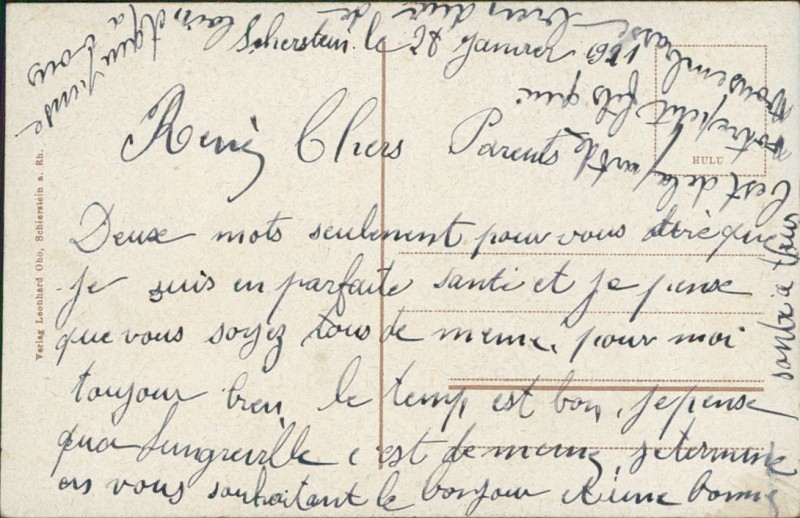 Scherstein. le 28 Janvier 1921
René Chers Parents
Deux mots seulement pour vous dire que
je suis en parfaite santé et je pense
que vous soyez tous de meme, pour moi
toujour bien le temp est bon, je pense
qua Lingreville c est de meme, je termine
en vous souhaitant le bonjour et une bonne
santée a tous
C'est de la part de
votre petit fils qui
vous embrasse bien deux de
loin, René pense
a vous
HULU
Verlag Leonhard Oho, Schierstein a. Rh.